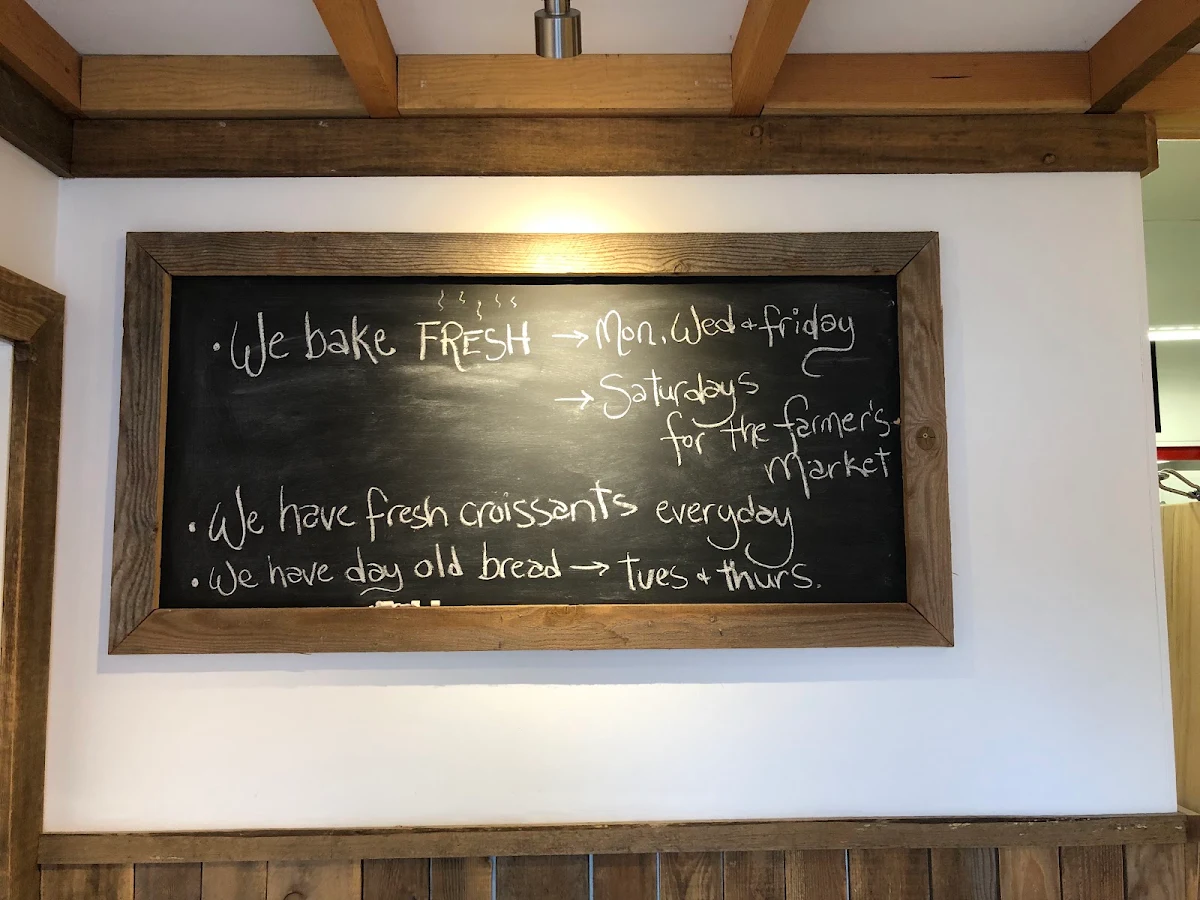 • We bake FRESH → Mon, Wed + friday
→ Saturdays
for the farmer's
Market
• We have fresh croissants everyday
• We have day old bread → tues + thurs.